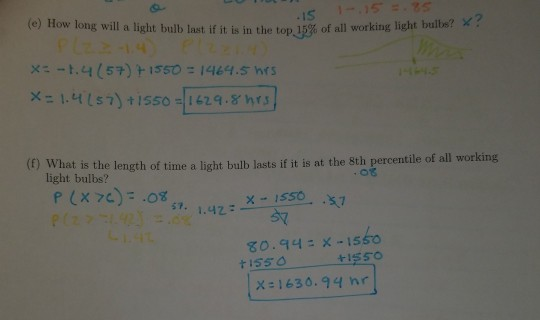 .15 1-.15 = .85
(e) How long will a light bulb last if it is in the top 15% of all working light bulbs? x?
P(Z≥-1.4) P(Z≥1.4)
x = -1.4(57)+1550 = 1464.5 hrs
1464.5
x = 1.4(57)+1550 = 1629.8 hrs
(f) What is the length of time a light bulb lasts if it is at the 8th percentile of all working
.08
light bulbs?
P(X>C) = .08
57. 1.42 = x - 1550 / 57 .57
80.94 = x - 1550
+1550 +1550
x = 1630.94 hr